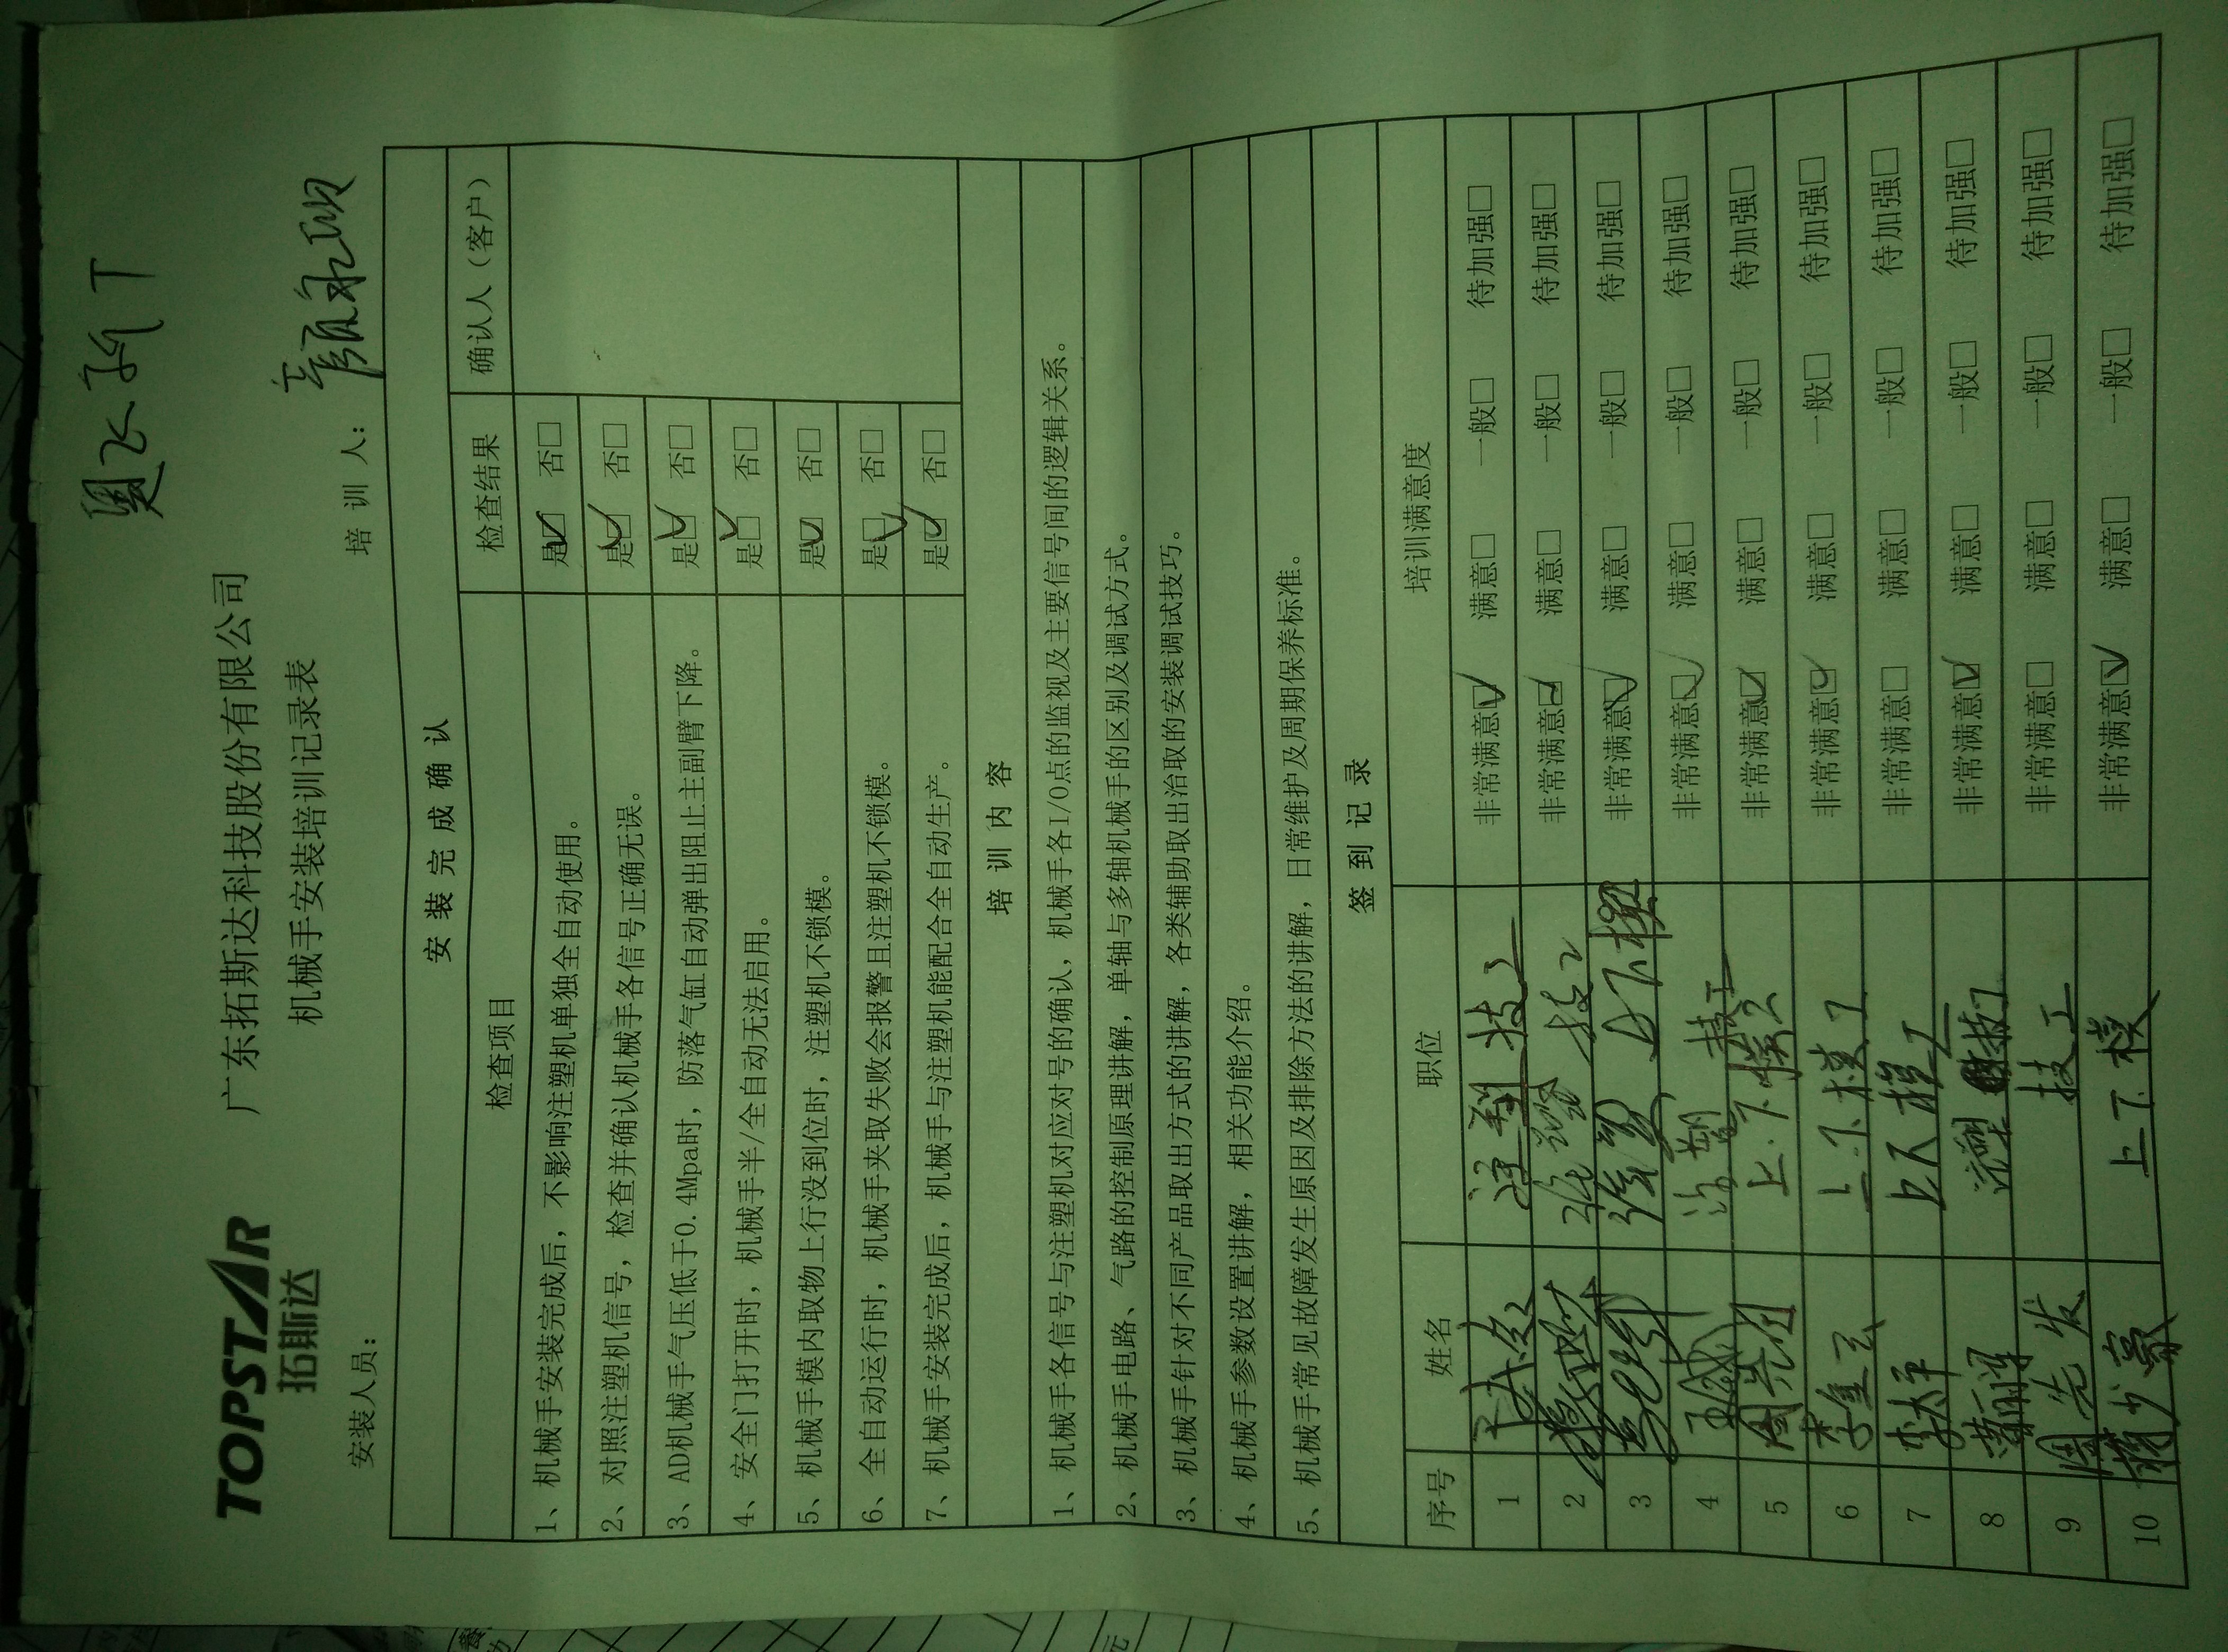 TOPSTAR
拓斯达
广东拓斯达科技股份有限公司
机械手安装培训记录表
安装人员：
培 训 人：
安 装 完 成 确 认
检查项目 检查结果 确认人（客户）
1、机械手安装完成后，不影响注塑机单独全自动使用。 是☑ 否□
2、对照注塑机信号，检查并确认机械手各信号正确无误。 是☑ 否□
3、AD机械手气压低于0.4Mpa时，防落气缸自动弹出阻止主副臂下降。 是☑ 否□
4、安全门打开时，机械手半/全自动无法启用。 是☑ 否□
5、机械手模内取物上行没到位时，注塑机不锁模。 是☑ 否□
6、全自动运行时，机械手夹取失败会报警且注塑机不锁模。 是☑ 否□
7、机械手安装完成后，机械手与注塑机能配合全自动生产。 是☑ 否□
培 训 内 容
1、机械手各信号与注塑机对应对号的确认，机械手各I/O点的监视及主要信号间的逻辑关系。
2、机械手电路、气路的控制原理讲解，单轴与多轴机械手的区别及调试方式。
3、机械手针对不同产品取出方式的讲解，各类辅助取出治取的安装调试技巧。
4、机械手参数设置讲解，相关功能介绍。
5、机械手常见故障发生原因及排除方法的讲解，日常维护及周期保养标准。
签 到 记 录
序号 姓名 职位 培训满意度
1 注塑技工 非常满意☑ 满意□ 一般□ 待加强□
2 非常满意☑ 满意□ 一般□ 待加强□
3 上下模 非常满意☑ 满意□ 一般□ 待加强□
4 技工 非常满意☑ 满意□ 一般□ 待加强□
5 上下模工 非常满意☑ 满意□ 一般□ 待加强□
6 上下模工 非常满意☑ 满意□ 一般□ 待加强□
7 李太平 上下模工 非常满意□ 满意□ 一般□ 待加强□
8 非常满意☑ 满意□ 一般□ 待加强□
9 周先发 技工 非常满意□ 满意□ 一般□ 待加强□
10 上下模 非常满意☑ 满意□ 一般□ 待加强□